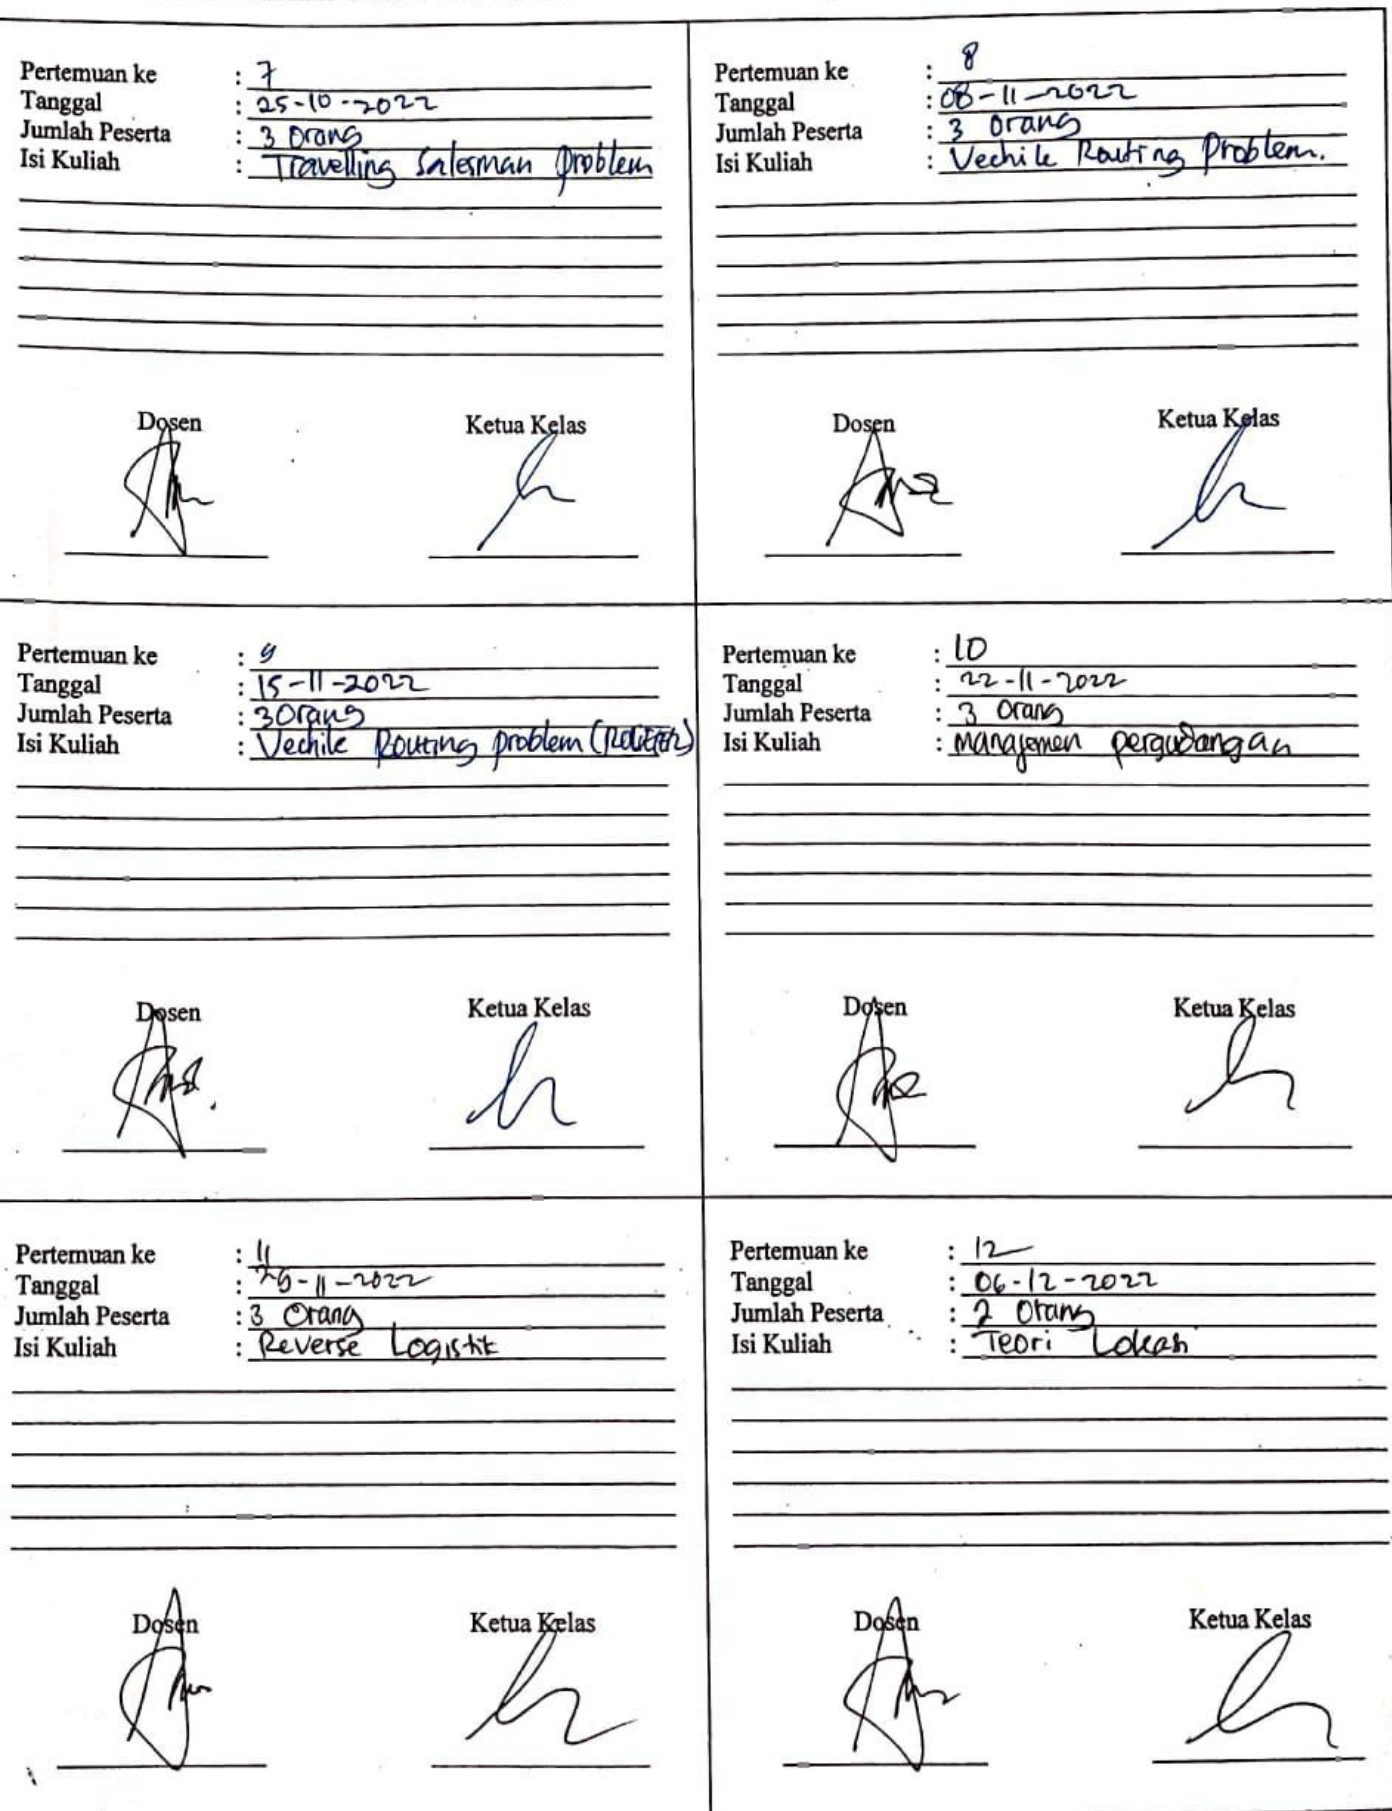 Pertemuan ke : 7
Tanggal : 25-10-2022
Jumlah Peserta : 3 Orang
Isi Kuliah : Travelling Salesman Problem
Dosen Ketua Kelas
Pertemuan ke : 8
Tanggal : 08-11-2022
Jumlah Peserta : 3 Orang
Isi Kuliah : Vechile Routing Problem.
Dosen Ketua Kelas
Pertemuan ke : 9
Tanggal : 15-11-2022
Jumlah Peserta : 3 Orang
Isi Kuliah : Vechile Routing problem
Dosen Ketua Kelas
Pertemuan ke : 10
Tanggal : 22-11-2022
Jumlah Peserta : 3 Orang
Isi Kuliah : Manajemen pergudangan
Dosen Ketua Kelas
Pertemuan ke : 11
Tanggal : 29-11-2022
Jumlah Peserta : 3 Orang
Isi Kuliah : Reverse Logistik
Dosen Ketua Kelas
Pertemuan ke : 12
Tanggal : 06-12-2022
Jumlah Peserta : 2 Orang
Isi Kuliah : Teori Lokasi
Dosen Ketua Kelas